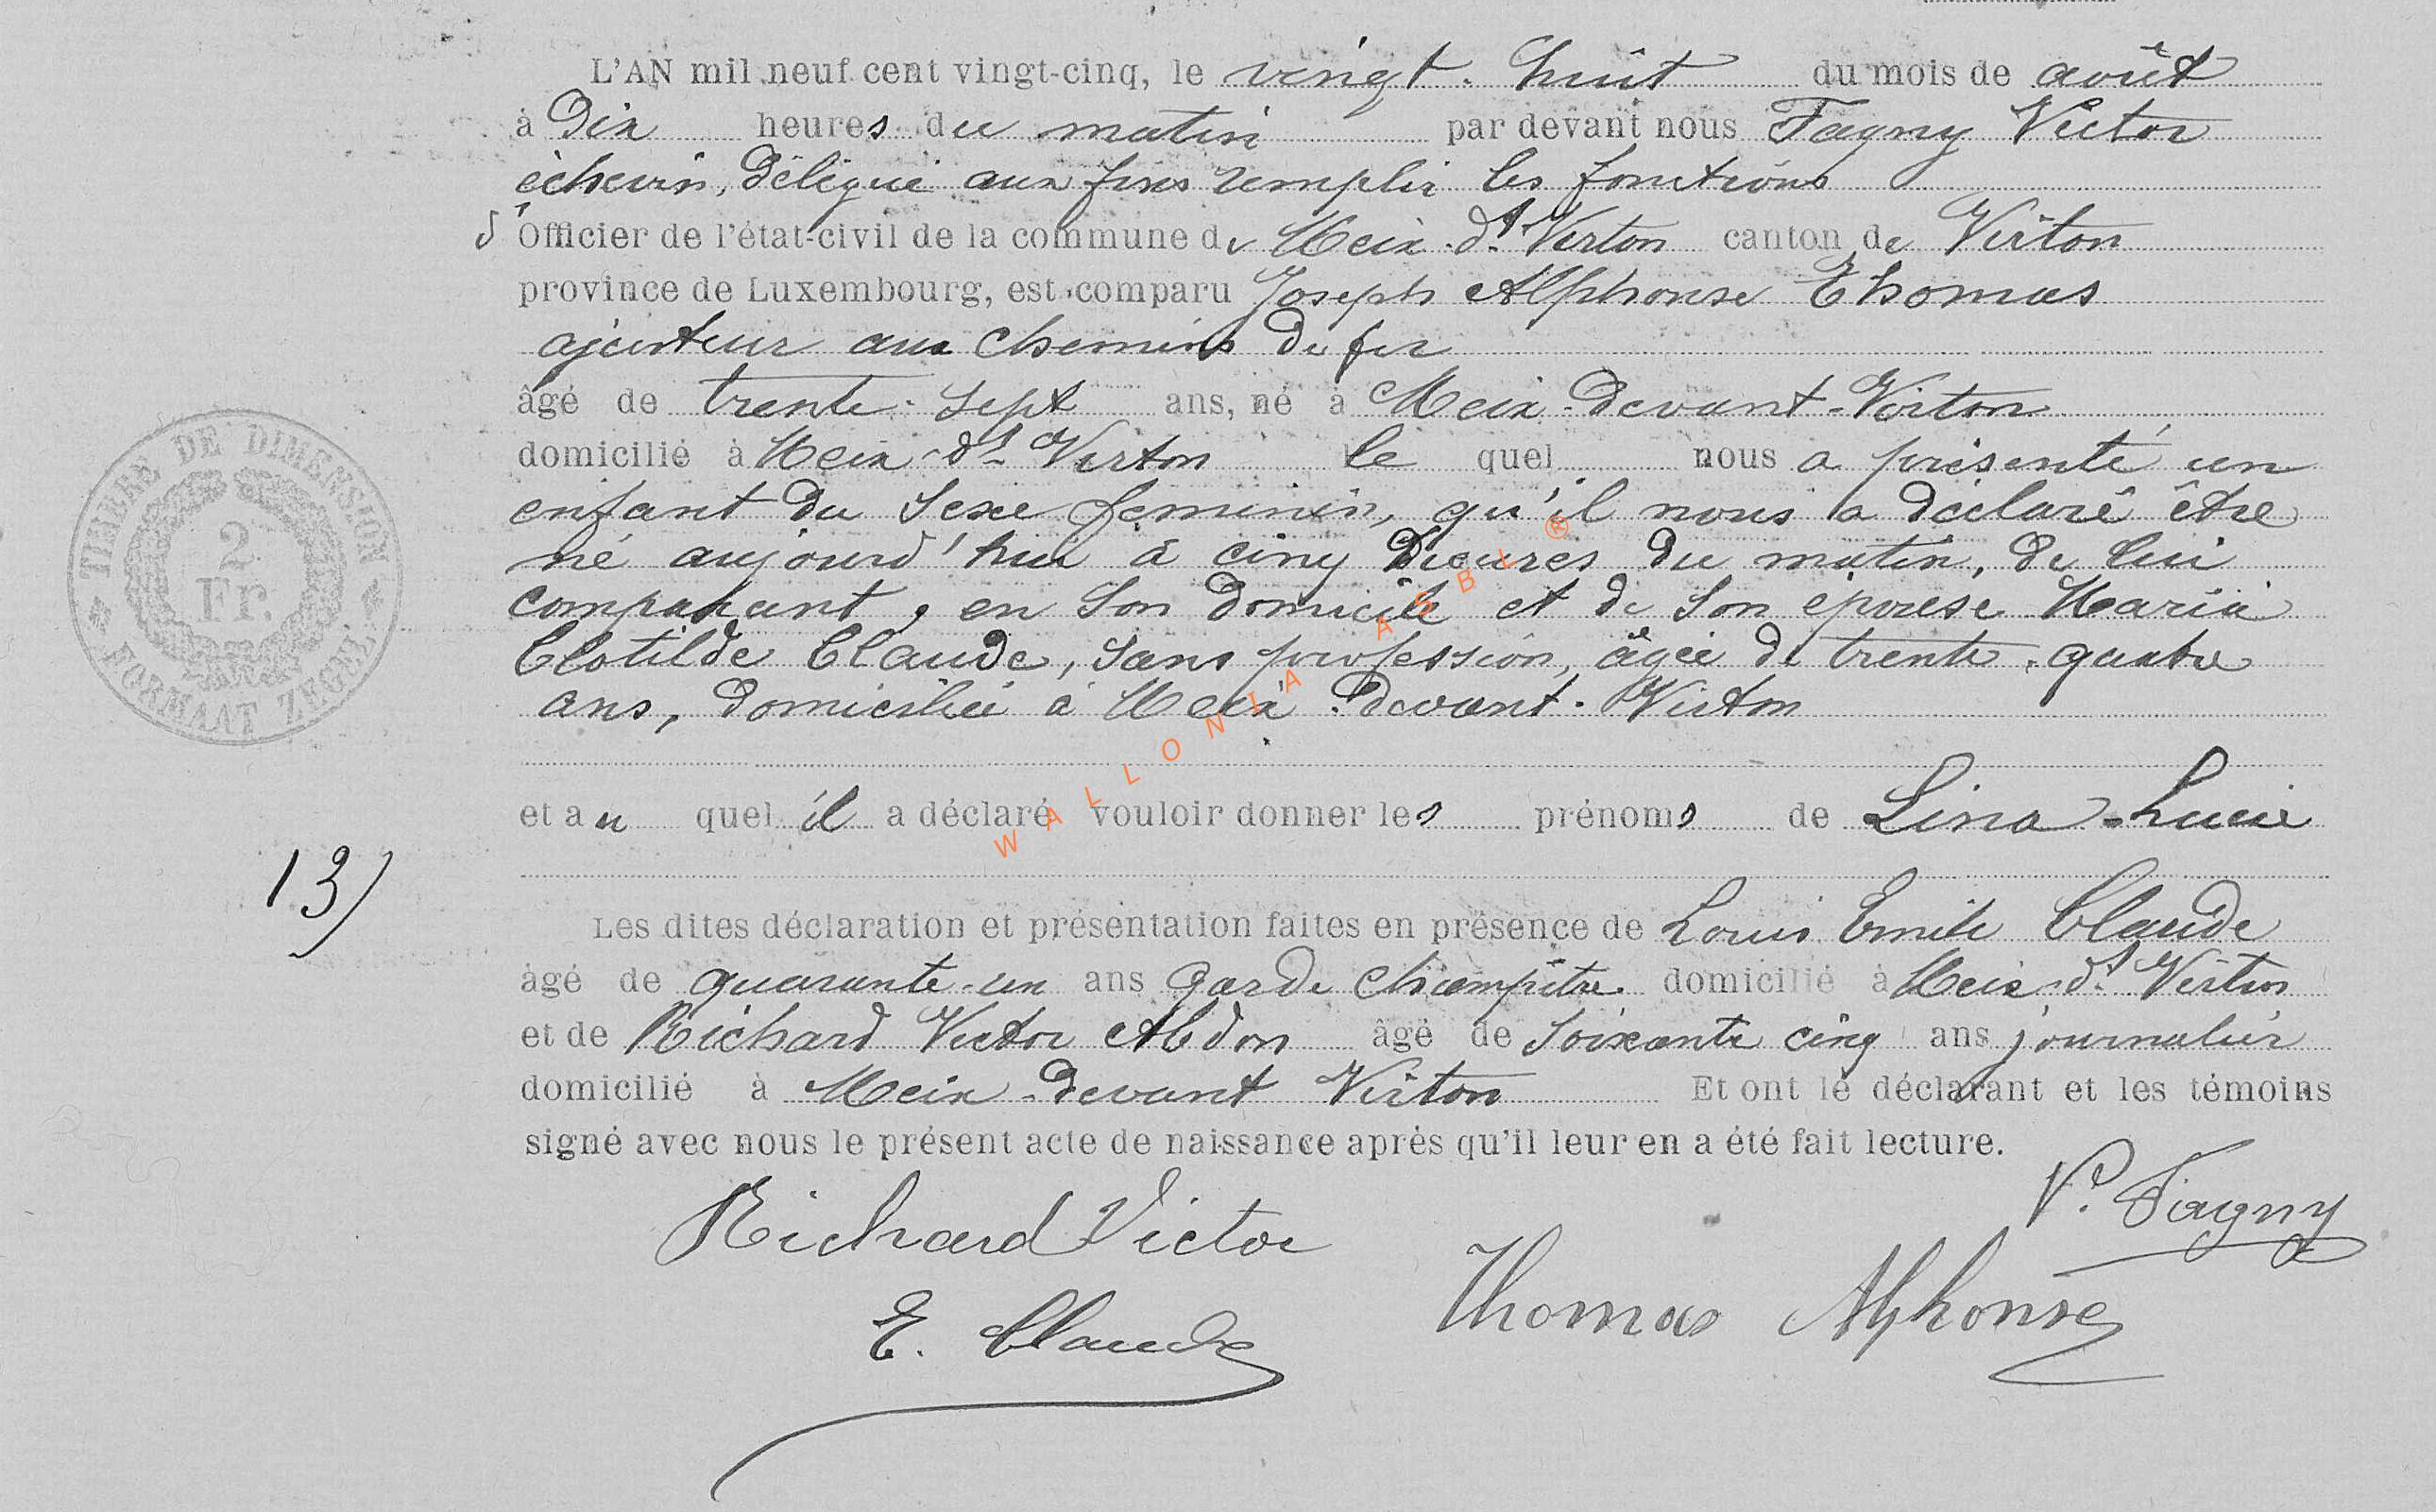 L'AN mil neuf cent vingt-cinq, le vingt-huit du mois de août
à dix heures du matin par devant nous Fagny Victor
échevin, délégué aux fins remplir les fonctions
d'Officier de l'état-civil de la commune de Meix-dt Virton canton de Virton
province de Luxembourg, est comparu Joseph Alphonse Thomas
ajusteur aux chemins de fer
âgé de trente-sept ans, né à Meix-devant-Virton
domicilié à Meix-dt Virton le quel nous a présenté un
enfant du sexe feminin, qu'il nous a déclaré être
né aujourd'hui à cinq heures du matin, de lui
comparant, en son domicile et de son épouse Maria
Clotilde Claude, sans profession, âgée de trente-quatre
ans, domiciliée à Meix-devant-Virton
et au quel il a déclaré vouloir donner les prénoms de Lina-Lucie
13)
Les dites déclaration et présentation faites en présence de Louis Emile Claude
âgé de quarante-un ans garde champêtre domicilié à Meix-dt Virton
et de Richard Victor Abdon âgé de soixante cinq ans journalier
domicilié à Meix-devant Virton Et ont le déclarant et les témoins
signé avec nous le présent acte de naissance après qu'il leur en a été fait lecture.
V. Fagny
Richard Victor
Thomas Alphonse
E. Claude
TIMBRE DE DIMENSION
2
Fr.
FORMAAT ZEGEL
WALLONIA ASBL ®